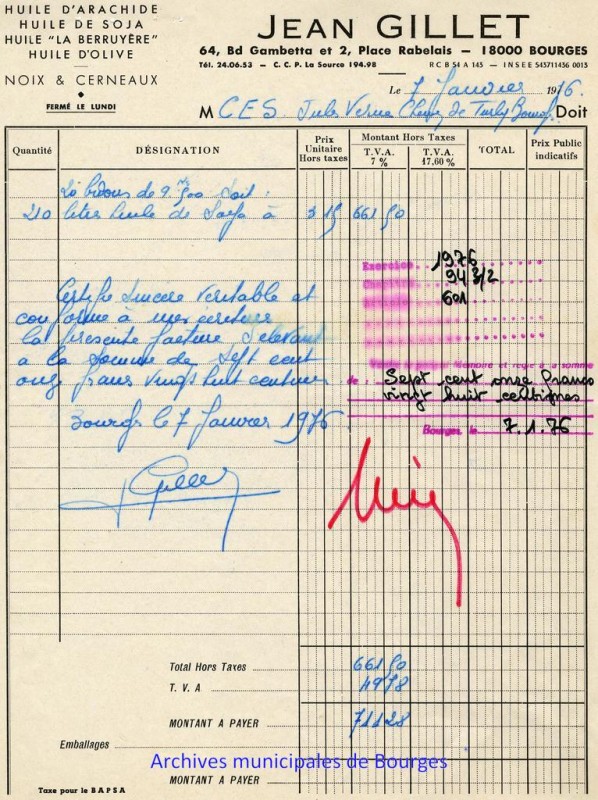 HUILE D'ARACHIDE
HUILE DE SOJA
HUILE "LA BERRUYÈRE"
HUILE D'OLIVE
NOIX & CERNEAUX
FERMÉ LE LUNDI
JEAN GILLET
64, Bd Gambetta et 2, Place Rabelais - 18000 BOURGES
Tél. 24.06.53 - C. C. P. La Source 194.98 R C B 54 A 145 - INSEE 543711436 0013
Le 7 Janvier 1976.
M CES. Jules Verne Chemin de Turly Bourges Doit
Quantité
DÉSIGNATION
Prix Unitaire Hors taxes
Montant Hors Taxes
T.V.A. 7 %
T.V.A. 17,60 %
TOTAL
Prix Public indicatifs
20 bidons de 9. 500 Soit :
210 litres huile de Soya à 3 15 661 50
Exercice 1976
94 3/2
601
Certifie Sincere Veritable et
conforme à mes ecriture
la presente facture S'elevant
a la Somme de Sept cent
onze frans vingt huit centimes
Bourges le 7 Janvier 1976
Mémoire et réglé à la somme
de : Sept cent onze francs
vingt huit centimes
Bourges, le 7.1.76
Gillet
Total Hors Taxes 661 50
T. V. A 49 78
MONTANT A PAYER 711 28
Emballages
Archives municipales de Bourges
MONTANT A PAYER
Taxe pour le BAPSA